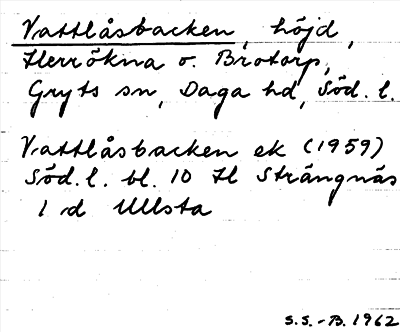 Vattlåsbacken, höjd,
Herrökna o. Brotorp,
Gryts sn, Daga hd, Söd. l.
Vattlåsbacken ek (1959)
Söd. l. bl. 10 Il Strängnäs
1 d Ullsta
S.S.-B. 1962